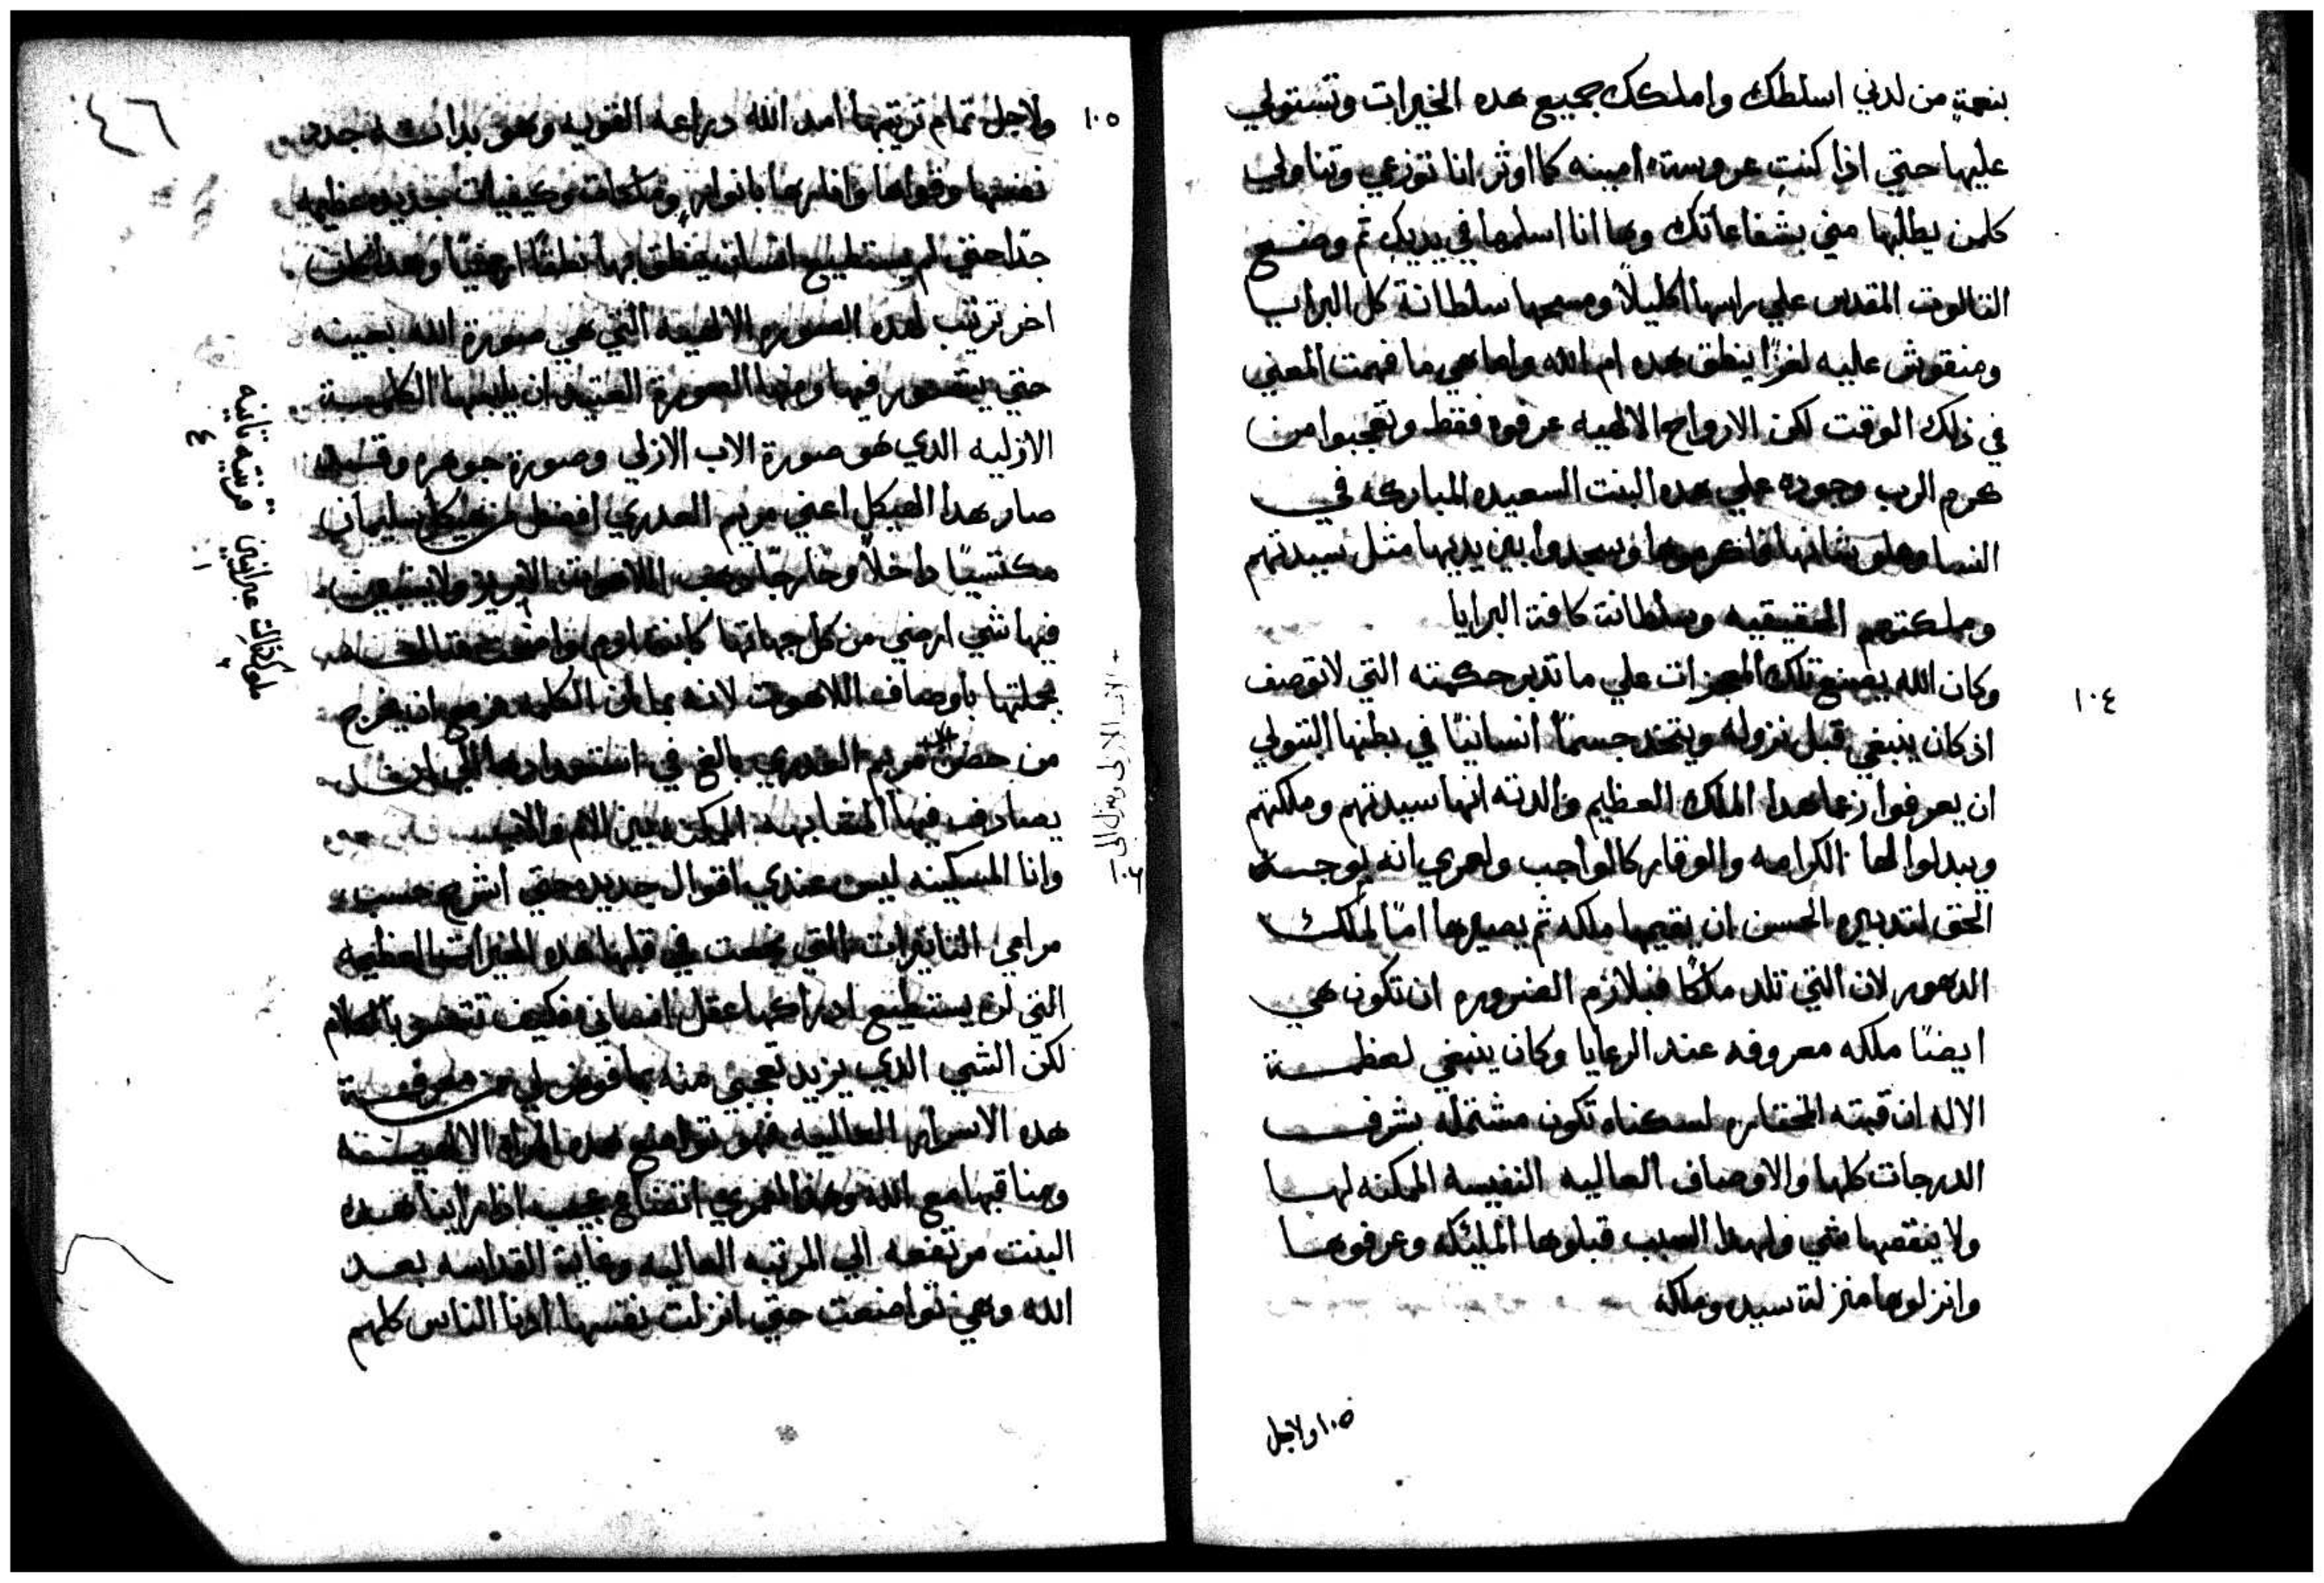 بنعمةٍ من لدني اسلطك واملكك جميع هده الخيرات وتستولي
عليها حتي اذا كنتِ عروسته امينه كما اوثر انا توزعي وتناولي
كلمن يطلبها مني بشفاعاتك وها انا اسلمها في يديكِ ثم وضع
التالوت المقدس علي راسها اكليلاً ومسحها سلطانة كل البرايا
ومنقوش عليه لغزًا ينطق هده ام الله واما هي ما فهمت المعني
في ذلك الوقت لكن الارواح الالهيه عرفوه فقط وتعجبوا من
كرم الرب وجوده علي هده البنت السعيده المباركه في
النسا وعلو شانها فاكرموها وسجدوا بين يديها مثل سيدتهم
وملكتهم الحقيقيه وسلطانة كافة البرايا
١٠٤
وكان الله يصنع تلك المعجزات علي ما تدبر حكمته التي لا توصف
اذ كان ينبغي قبل نزوله ويتخد جسمًا انسانيًا في بطنها البتولي
ان يعرفوا زعما هدا الملك العظيم والدته انها سيدتهم وملكتهم
ويبدلوا لها الكرامه والوقار كالواجب ولعمري انه يوجب
الحق لتدبيره الحسن ان يقيمها ملكه ثم يصيرها امًا لملك
الدهور لان التي تلد ملكًا فبلازم الضروره ان تكون هي
ايضًا ملكه معروفه عند الرعايا وكان ينبغي لعظمة
الاله ان قبته المختاره لسكناه تكون مشتمله بشرف
الدرجات كلها والاوصاف العاليه النفيسه الممكنه لها
ولا ينقصها شي ولهدا السبب قبلوها المليكه وعرفوها
وانزلوها منزلة سيده وملكه
١٠٥ ولاجل
٤٦
١٠٥
ولاجل تمام تربيتها امد الله دراعه القويه وهو بداته جدد
نفسها وقواها وانارها بانوارٍ وملكات وكيفيات جديده عظيمه
جدًا حتي لم يستطيع انسان ينطق بها نطقًا ارضيًا وهدا كان
اخر ترتيب لهده الصوره الالهيه التي هي صورة الله بعينه
حتي يتصور فيها ومنها الصورة العتيد ان يلبسها الكلمة
الازليه الدي هو صورة الاب الازلي وصورة جوهره وقد
صار هدا الهيكل اعني مريم العدري افضل من هيكل سليمان
مكتسيًا داخلاً وخارجًا دهب اللاهوت الابريز ولا يتبين
فيها شي ارضي من كل جهاتها كابنة ادم واضحت
بجملتها باوصاف اللاهوت لانه بما ان الكلمه مزمع ان يخرج
من حضن الاب الازلي وينزل الي حضن مريم العدري بالغ في استعدادها الي ان
يصادف فيها المشابهه الممكنه بين الام والاب
وانا المسكينه ليس عندي اقوال جديده حتي اشرح حسب
مرامي التاتيرات التي صنعت في قلبها هده الخيرات العظيمه
التي لن يستطيع ادراكها عقل انساني فكيف تتفسر بالكلام
لكن الشي الدي يزيد تعجبي منه بما فوض لي من معرفة
هده الاسرار العاليه فهو تواضع هده المراه الالهية
ومناقبها مع الله وهذا لعمري اتضاع عجيب اذا راينا هده
البنت مرتفعه الي المرتبه العاليه وغاية القداسه بعد
الله وهي تواضعت حتي انزلت نفسها ادنا الناس كلهم
ملوك ثالث عبرانيين قرنتيه تانيه
٤
١